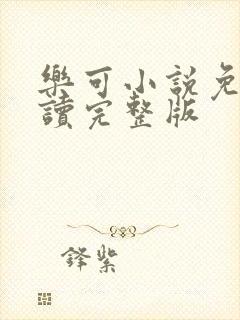 樂可小說免
讀完整版
鋒紫